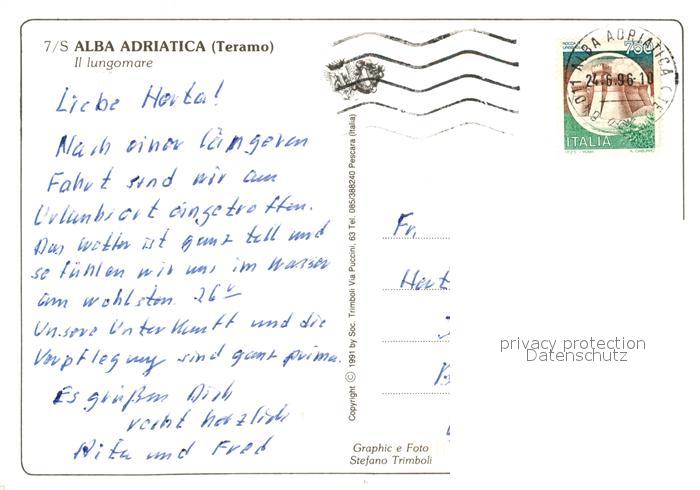 7/S ALBA ADRIATICA (Teramo)
Il lungomare
Liebe Herta!
Nach einer längeren
Fahrt sind wir am
Urlaubsort eingetroffen.
Das Wetter ist ganz toll und
so fühlen wir uns im Wasser
am wohlsten. 26°
Unsere Unterkunft und die
Verpflegung sind ganz prima.
Es grüßen Dich
recht herzlich
Rita und Fred
Copyright © 1991 by Soc. Trimboli Via Puccini, 63 Tel. 085/388240 Pescara (Italia)
750
ALBA ADRIATICA (TE)
24.6.96-10
ITALIA
Fr.
Hert
privacy protection
Datenschutz
Graphic e Foto
Stefano Trimboli